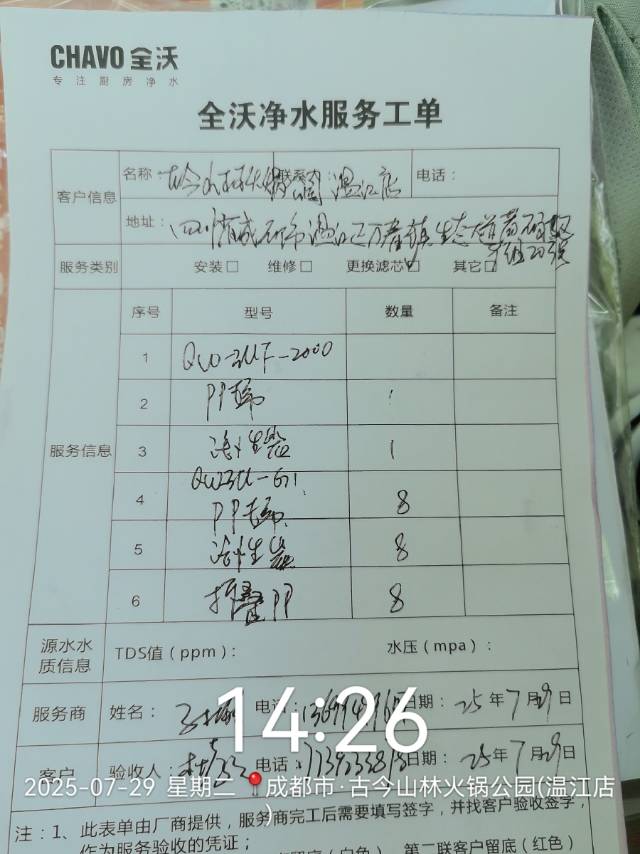 CHAVO 全沃
专注厨房净水
全沃净水服务工单
客户信息
名称 古今山林火锅公园 联系人 温江店 电话：
地址：四川省成都市温江区万春镇生态大道
服务类别 安装□ 维修□ 更换滤芯□ 其它□
服务信息
序号 型号 数量 备注
1 QW-3UF-2000
2 PP棉 1
3 活性炭 1
4 QW3U-G1 PP棉 8
5 活性炭 8
6 折叠PP 8
源水水质信息 TDS值（ppm）： 水压（mpa）：
服务商 姓名： 电话： 日期：25年7月29日
客户 验收人： 电话： 日期：25年7月29日
14:26
2025-07-29 星期二 成都市·古今山林火锅公园(温江店)
注：1、此表单由厂商提供，服务商完工后需要填写签字，并找客户验收签字，
作为服务验收的凭证；
第二联客户留底（红色）